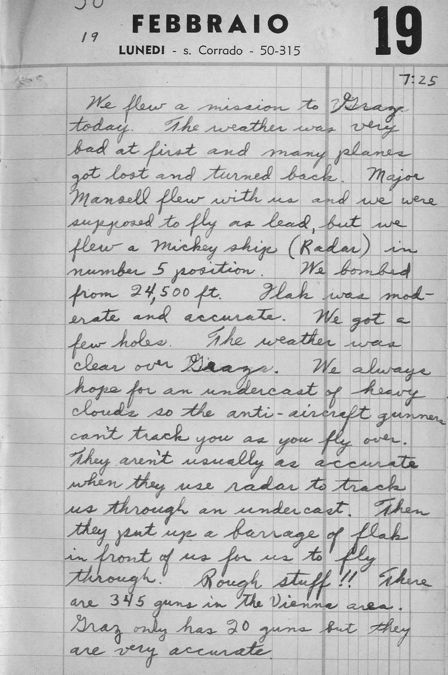 30
19
FEBBRAIO
LUNEDI - s. Corrado - 50-315
19
7:25
We flew a mission to Graz
today. The weather was very
bad at first and many planes
got lost and turned back. Major
Mansell flew with us and we were
supposed to fly as lead, but we
flew a Mickey ship (Radar) in
number 5 position. We bombed
from 24,500 ft. Flak was mod-
erate and accurate. We got a
few holes. The weather was
clear over Graz. We always
hope for an undercast of heavy
clouds so the anti-aircraft gunners
can't track you as you fly over.
They aren't usually as accurate
when they use radar to track
us through an undercast. Then
they put up a barrage of flak
in front of us for us to fly
through. Rough stuff!! There
are 345 guns in the Vienna area.
Graz only has 20 guns but they
are very accurate.